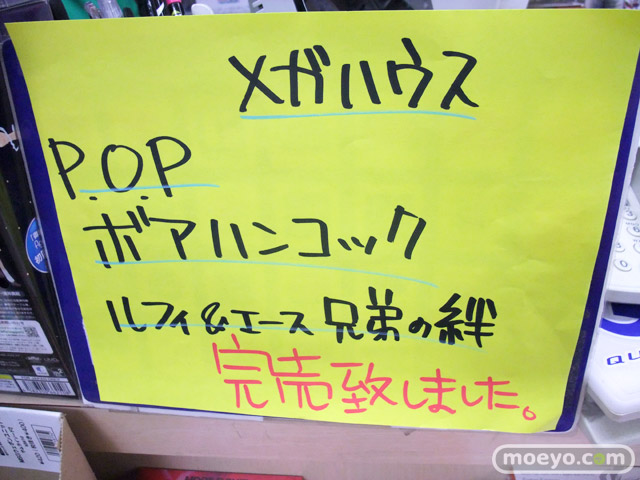 メガハウス
P.O.P
ボアハンコック
ルフィ&エース 兄弟の絆
完売致しました。
QU
moeyo.com